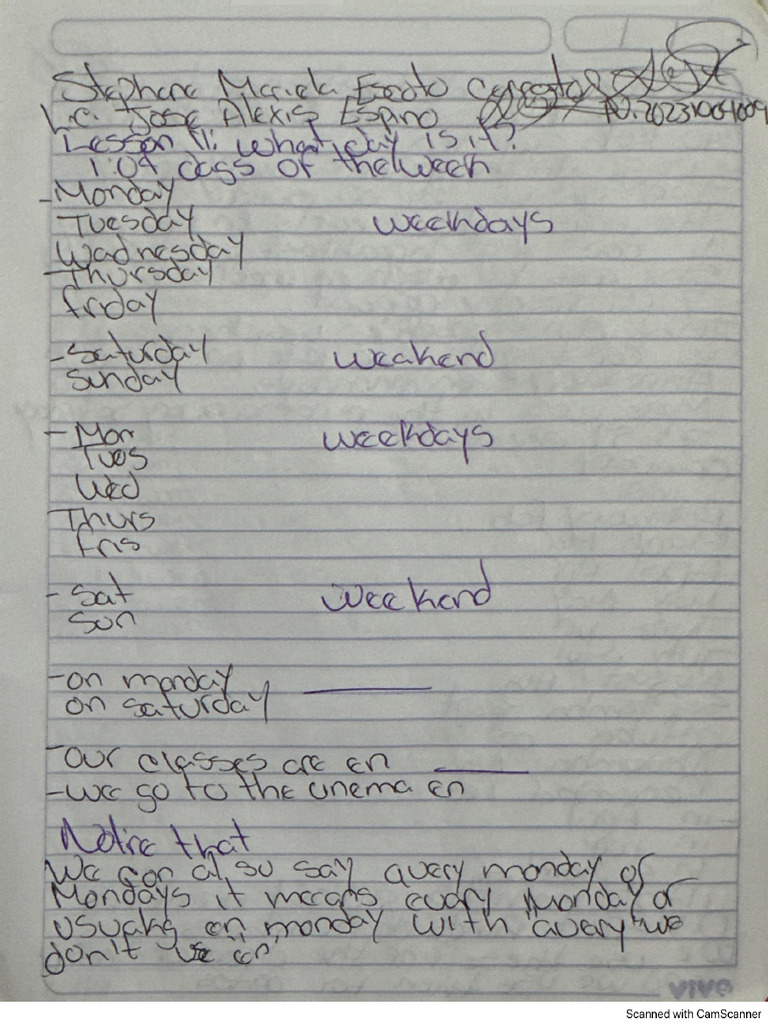 Stephane Mariela Escoto
Lic. Jose Alexis Espino
Lesson 11: what day is it?
1.04 days of the week
-Monday
Tuesday weekdays
Wadnesday
Thursday
friday
-Saturday weakend
Sunday
-Mon weekdays
Tues
Wed
Thurs
fris
-Sat weekend
Sun
-on monday
on saturday
-our classes are en
-we go to the cinema en
Notice that
We can also say avery monday or
Mondays it means every Monday or
usually en monday with "avery" we
don't use "en"
vivo
Scanned with CamScanner